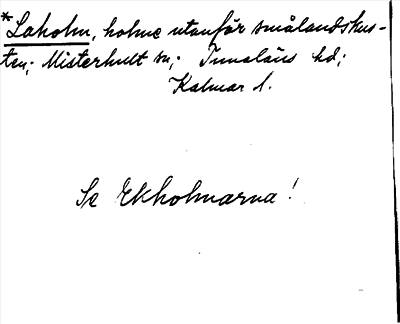 *Laholm, holme utanför smålandskus-
ten; Misterhult sn; Tunaläns hd;
Kalmar l.
Se Ekholmarna!